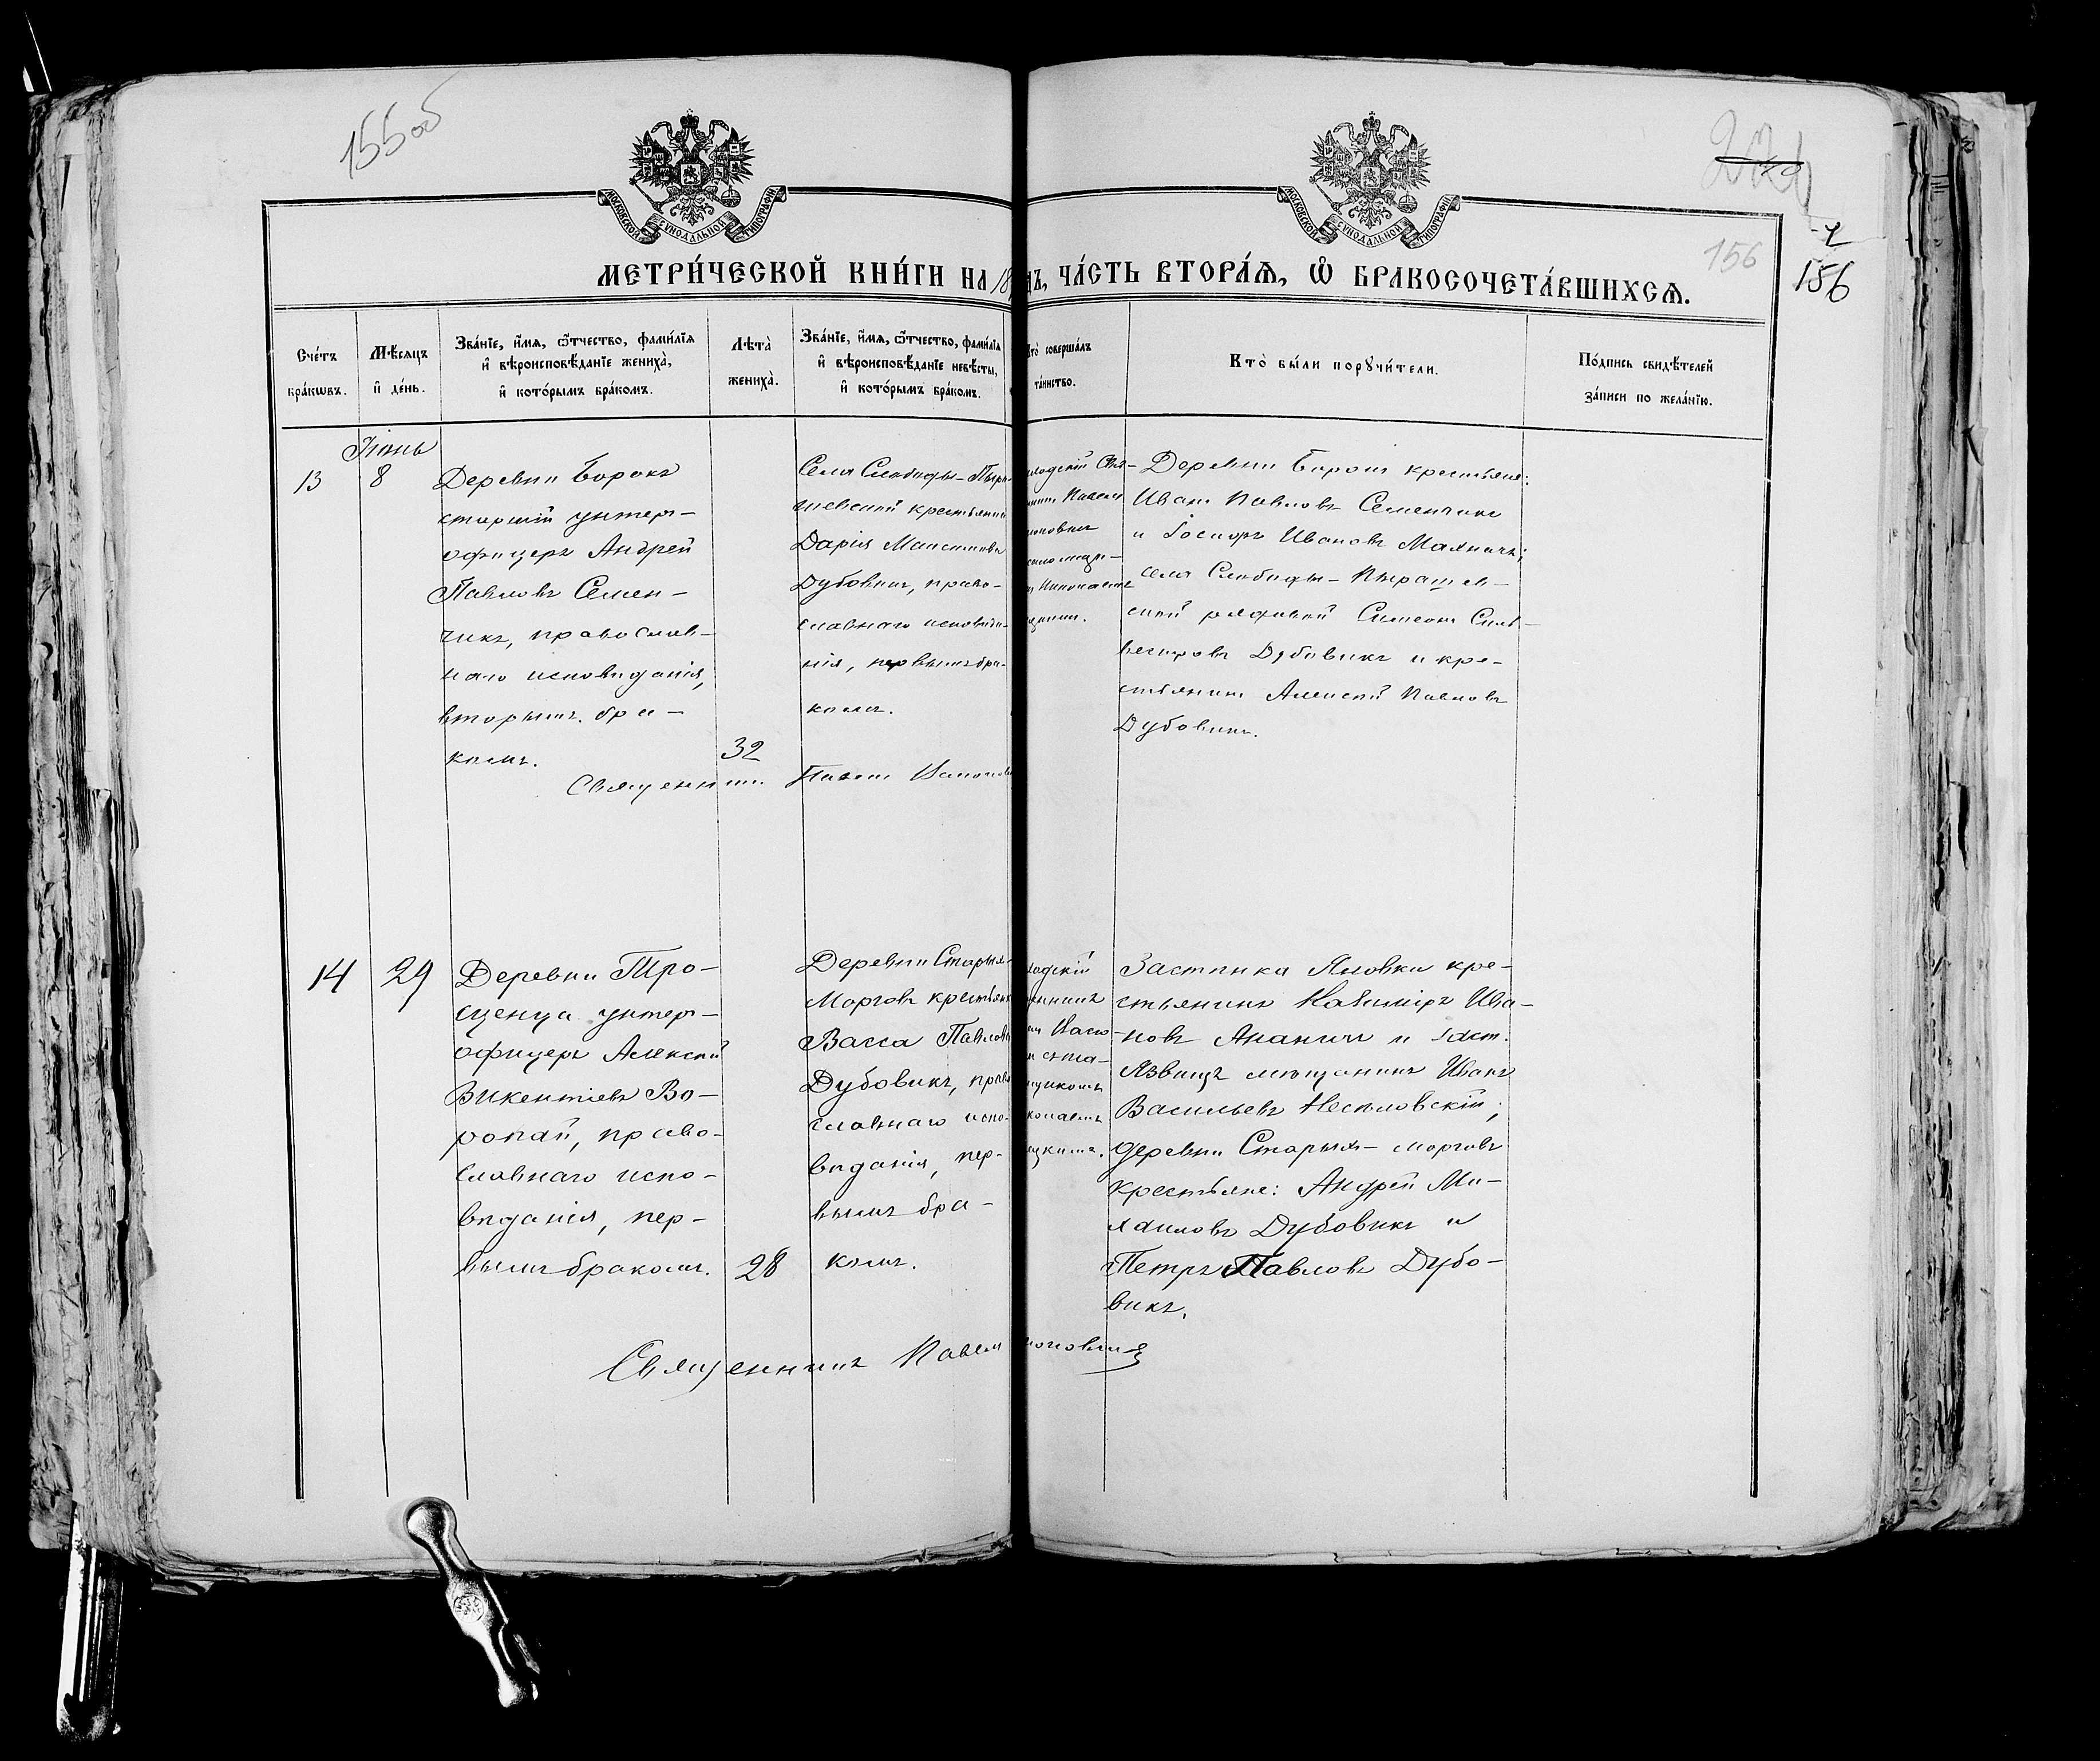 155об
156
156
МОСКОВСКОЙ СѴНОДАЛЬНОЙ ТИПОГРАФІИ
МОСКОВСКОЙ СѴНОДАЛЬНОЙ ТИПОГРАФІИ
МЕТРИ́ЧЕСКОЙ КНИ́ГИ НА 18
ЧА́СТЬ ВТОРА́Ѧ, Ѽ БРАКОСОЧЕТА́ВШИХСѦ.
Сче́тъ
бра́кѡвъ.
Мѣ́сяцъ
и҆ де́нь.
Зва́нїе, и҆́мя, ѻ҆́тчество, фами́лїя
и҆ вѣроисповѣ́данїе жениха̀,
и҆ кото́рымъ бра́комъ.
Лѣта̀
жениха̀.
Зва́нїе, и҆́мя, ѻ҆́тчество, фами́лїя
и҆ вѣроисповѣ́данїе невѣ́сты,
и҆ кото́рымъ бра́комъ.
соверша́лъ
та́инство.
Кто̀ бы́ли порꙋчи́тели.
По́дпись свидѣ́телей
за́писи по жела́нїю.
Іюнь
13
8
Деревни Борокъ
старшій унтеръ-
офицеръ Андрей
Павловъ Семен-
чикъ, православ-
наго исповѣданія,
вторымъ бра-
комъ.
32
Села Слободы-Пыра-
шевской крестьянка
Дарія
Дубовикъ, право-
славнаго исповѣда-
нія, первымъ бра-
комъ.
Деревни Борокъ крестьяне:
Иванъ Павловъ Семенчикъ
и Іосифъ Ивановъ Махначъ;
села Слободы-Пырашев-
ской рядовой Симеонъ Силь-
вестровъ Дубовикъ и кре-
стьянинъ Алексѣй Павловъ
Дубовикъ.
Священникъ Павелъ
14
29
Деревни Тро-
щенца унтеръ-
офицеръ Алексѣй
Викентіевъ Во-
ропай, право-
славнаго испо-
вѣданія, пер-
вымъ бракомъ.
28
Деревни Старыхъ-
Морговъ крестьянка
Васса Павлова
Дубовикъ, право-
славнаго испо-
вѣданія, пер-
вымъ бра-
комъ.
Застѣнка Яновки кре-
стьянинъ Казиміръ Ива-
новъ Ананичъ и заст.
Язвицъ мѣщанинъ Иванъ
Васильевъ
деревни Старыхъ-морговъ
крестьяне: Андрей Ми-
хаиловъ Дубовикъ и
Петръ Павловъ Дубо-
викъ.
Священникъ Павелъ